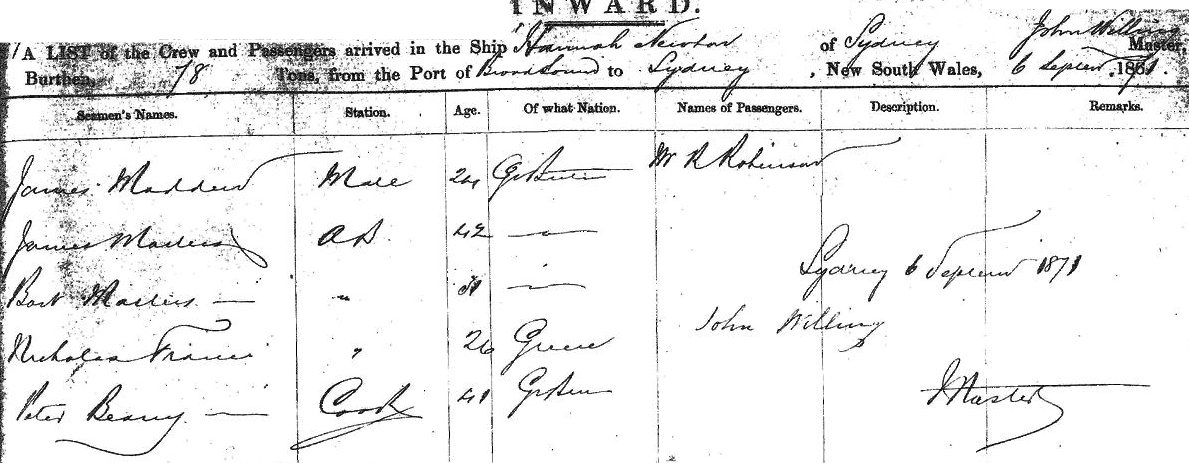 INWARD.
A LIST of the Crew and Passengers arrived in the Ship Hannah Newton of Sydney John Willing Master,
Burthen, 78 Tons, from the Port of Broad Sound to Sydney, New South Wales, 6 Septem 1871.
Seamen's Names. Station. Age. Of what Nation. Names of Passengers. Description. Remarks.
James Madden Mate 24 Gt Britain Mr R Robinson
James Masters AB 42 —
Bart Masters — " —
Nicholas Franci " 26 Greece
Peter Beany — Cook 41 Gt Britain
Sydney 6 Septem 1871
John Willing
Master